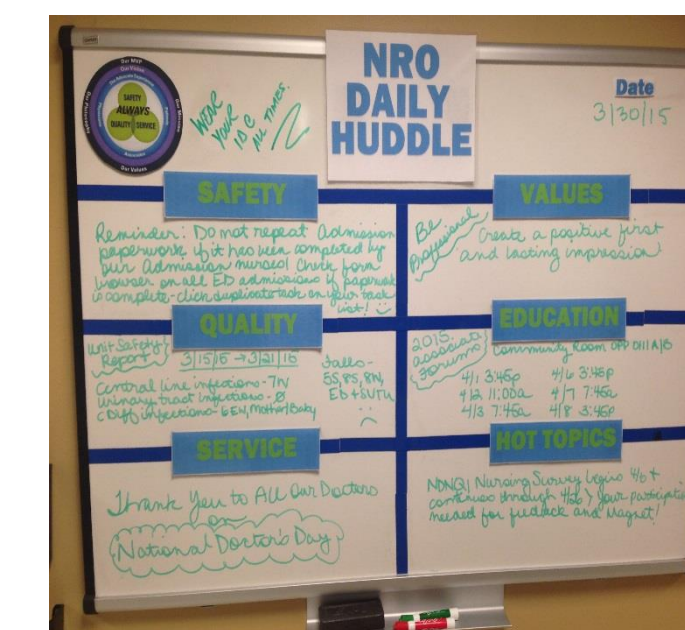 Our MVP
Our Vision
Our Advocate Experience
Our Philosophy
Our Mission
SAFETY
ALWAYS
QUALITY SERVICE
Our Values
WEAR
YOUR
ID @
ALL TIMES.
NRO
DAILY
HUDDLE
Date
3/30/15
SAFETY
Reminder: Do not repeat admission
paperwork if it has been completed by
our Admission nurses! Check form
browser on all ED admissions if paperwork
is complete - click duplicate task on your task
list!
VALUES
Be
Professional
Create a positive first
and lasting impression
QUALITY
Unit Safety
Report
3/15/15 → 3/21/15
Central line infections - 7N
Urinary tract infections - Ø
CDiff infections - Mother/Baby
Falls -
5S, 8S, 8N,
EDUCATION
2015
associate
Forums
Community Room
4/1 3:45p
4/6 3:45p
4/2 11:00a
4/7 7:45a
4/3 7:45a
4/8 3:45p
SERVICE
Thank You to All Our Doctors
on
National Doctor's Day
HOT TOPICS
NDNQI Nursing Survey begins 4/6 +
continues through your participation
needed for feedback and Magnet!